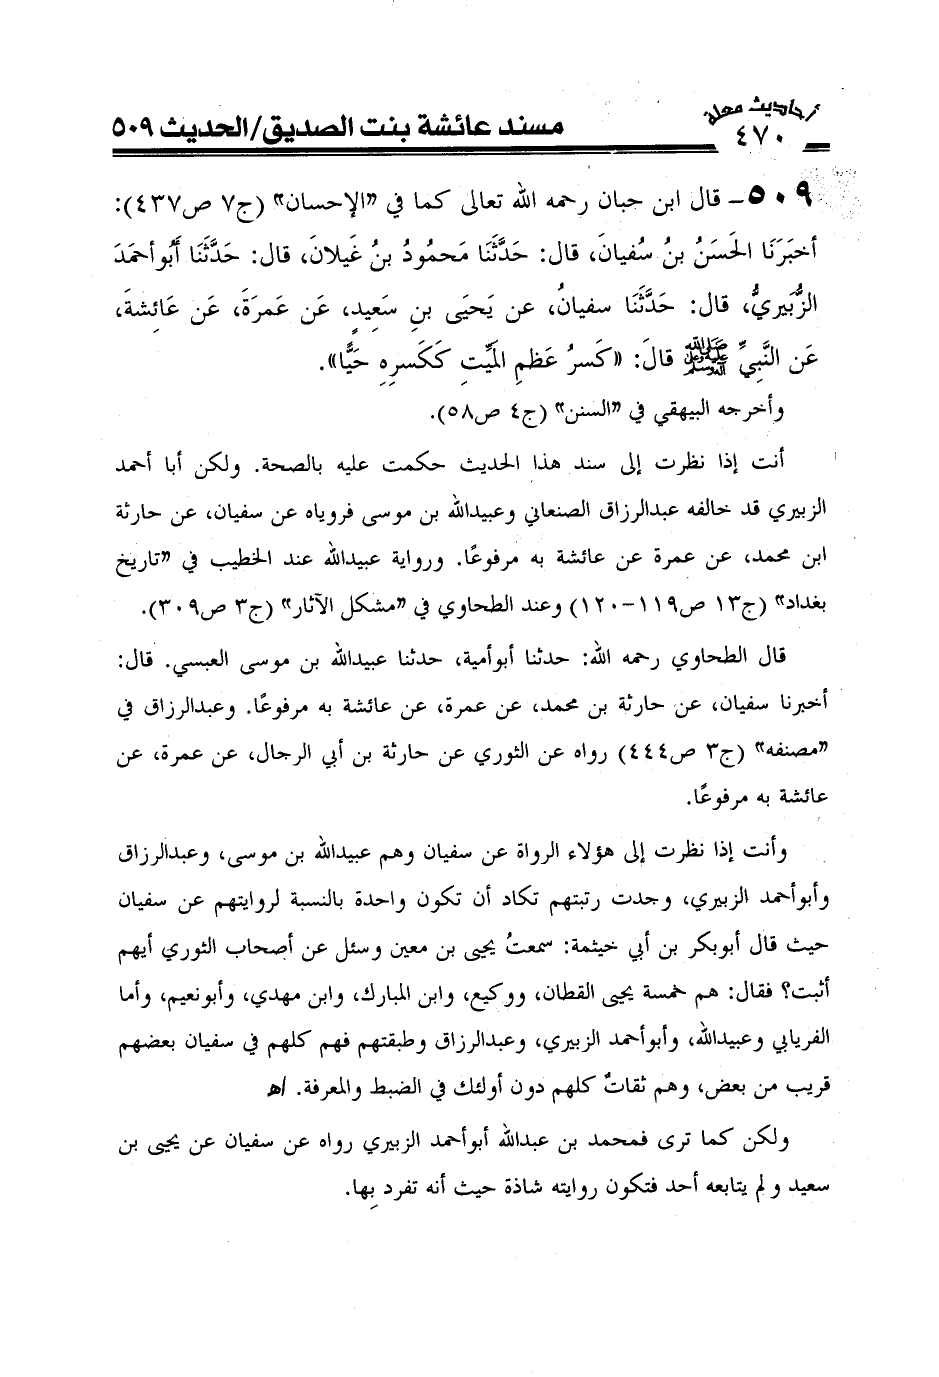 أحاديث معلة
٤٧٠
مسند عائشة بنت الصديق/الحديث ٥٠٩
٥٠٩- قال ابن حبان رحمه الله تعالى كما في "الإحسان" (ج٧ ص٤٣٧):
أخبَرَنَا الحَسَنُ بنُ سُفيانَ، قال: حَدَّثَنَا مَحمُودُ بنُ غَيلانَ، قال: حَدَّثَنَا أَبُوأحمَدَ
الزُّبَيريُّ، قال: حَدَّثَنَا سفيانُ، عن يَحيَى بنِ سَعِيدٍ، عَن عَمرَةَ، عَن عَائِشةَ،
عَن النَّبِيِّ ﷺ قالَ: «كَسرُ عَظمِ المَيِّتِ كَكَسرِهِ حَيًّا».
وأخرجه البيهقي في "السنن" (ج٤ ص٥٨).
أنت إذا نظرت إلى سند هذا الحديث حكمت عليه بالصحة. ولكن أبا أحمد
الزبيري قد خالفه عبدالرزاق الصنعاني وعبيدالله بن موسى فروياه عن سفيان، عن حارثة
ابن محمد، عن عمرة عن عائشة به مرفوعًا. ورواية عبيدالله عند الخطيب في "تاريخ
بغداد" (ج١٣ ص١١٩-١٢٠) وعند الطحاوي في "مشكل الآثار" (ج٣ ص٣٠٩).
قال الطحاوي رحمه الله: حدثنا أبوأمية، حدثنا عبيدالله بن موسى العبسي. قال:
أخبرنا سفيان، عن حارثة بن محمد، عن عمرة، عن عائشة به مرفوعًا. وعبدالرزاق في
"مصنفه" (ج٣ ص٤٤٤) رواه عن الثوري عن حارثة بن أبي الرجال، عن عمرة، عن
عائشة به مرفوعًا.
وأنت إذا نظرت إلى هؤلاء الرواة عن سفيان وهم عبيدالله بن موسى، وعبدالرزاق
وأبوأحمد الزبيري، وجدت رتبتهم تكاد أن تكون واحدة بالنسبة لروايتهم عن سفيان
حيث قال أبوبكر بن أبي خيثمة: سمعتُ يحيى بن معين وسئل عن أصحاب الثوري أيهم
أثبت؟ فقال: هم خمسة يحيى القطان، ووكيع، وابن المبارك، وابن مهدي، وأبونعيم، وأما
الفريابي وعبيدالله، وأبوأحمد الزبيري، وعبدالرزاق وطبقتهم فهم كلهم في سفيان بعضهم
قريب من بعض، وهم ثقاتٌ كلهم دون أولئك في الضبط والمعرفة. اﻫ
ولكن كما ترى فمحمد بن عبدالله أبوأحمد الزبيري رواه عن سفيان عن يحيى بن
سعيد ولم يتابعه أحد فتكون روايته شاذة حيث أنه تفرد بِها.